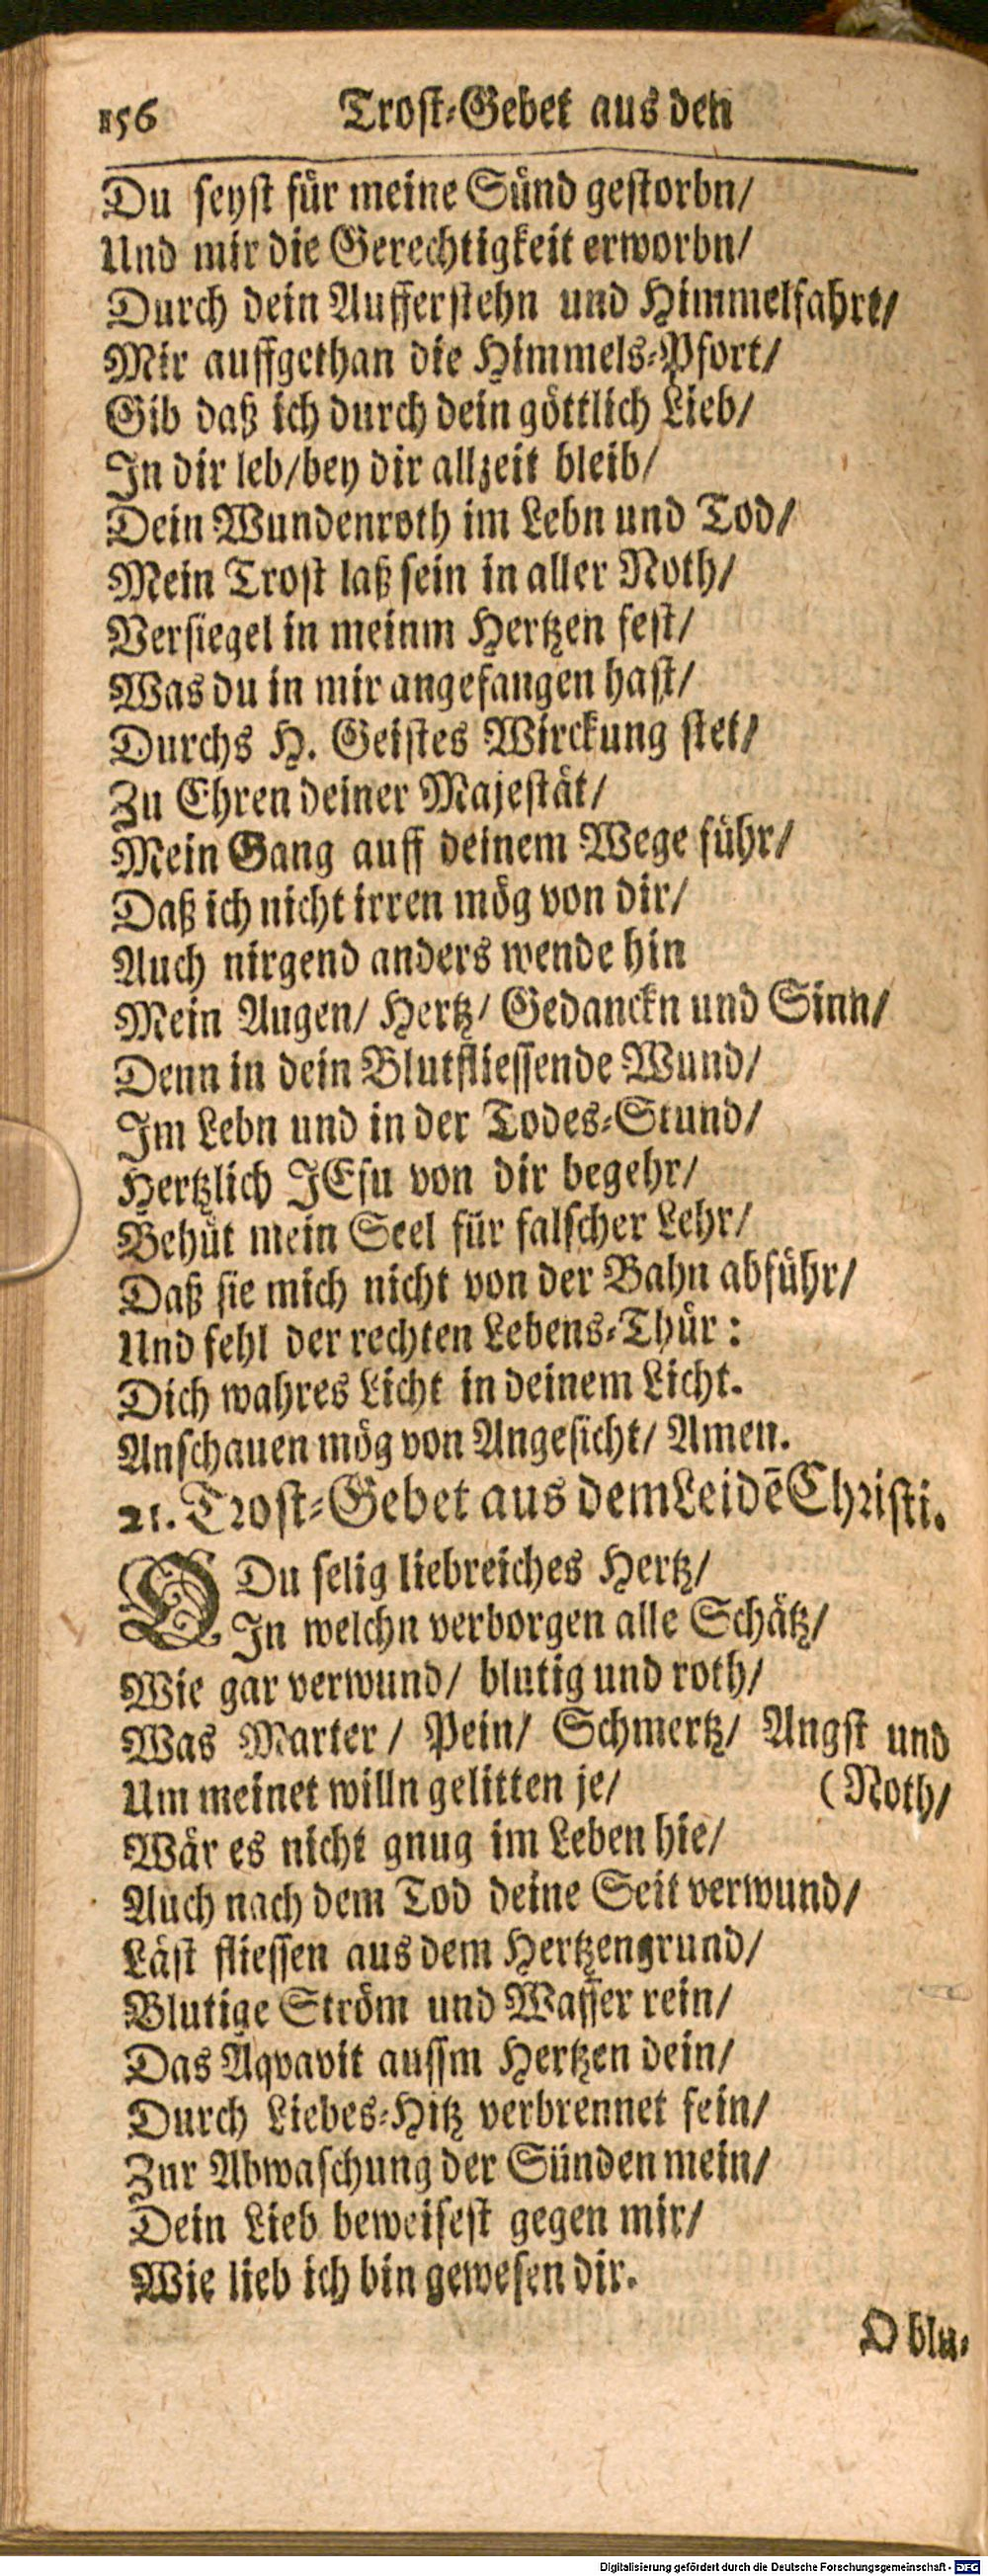 156 Trost-Gebet aus den
Du seyst für meine Sünd gestorbn/
Und mir die Gerechtigkeit erworbn/
Durch dein Aufferstehn und Himmelfahrt/
Mir auffgethan die Himmels-Pfort/
Gib daß ich durch dein göttlich Lieb/
In dir leb/bey dir allzeit bleib/
Dein Wundenroth im Lebn und Tod/
Mein Trost laß sein in aller Noth/
Versiegel in meinm Hertzen fest/
Was du in mir angefangen hast/
Durchs H. Geistes Wirckung stet/
Zu Ehren deiner Majestät/
Mein Gang auff deinem Wege führ/
Daß ich nicht irren mög von dir/
Auch nirgend anders wende hin
Mein Augen/ Hertz/ Gedanckn und Sinn/
Denn in dein Blutfliessende Wund/
Im Lebn und in der Todes-Stund/
Hertzlich JEsu von dir begehr/
Behüt mein Seel für falscher Lehr/
Daß sie mich nicht von der Bahn abführ/
Und fehl der rechten Lebens-Thür:
Dich wahres Licht in deinem Licht.
Anschauen mög von Angesicht/ Amen.
21. Trost-Gebet aus dem Leidē Christi.
O Du selig liebreiches Hertz/
In welchn verborgen alle Schätz/
Wie gar verwund/ blutig und roth/
Was Marter/ Pein/ Schmertz/ Angst und
Um meinet willn gelitten je/ (Noth/
Wär es nicht gnug im Leben hie/
Auch nach dem Tod deine Seit verwund/
Läst fliessen aus dem Hertzengrund/
Blutige Ström und Wasser rein/
Das Aqvavit aussm Hertzen dein/
Durch Liebes-Hitz verbrennet fein/
Zur Abwaschung der Sünden mein/
Dein Lieb beweisest gegen mir/
Wie lieb ich bin gewesen dir.
O blu-
Digitalisierung gefördert durch die Deutsche Forschungsgemeinschaft - DFG